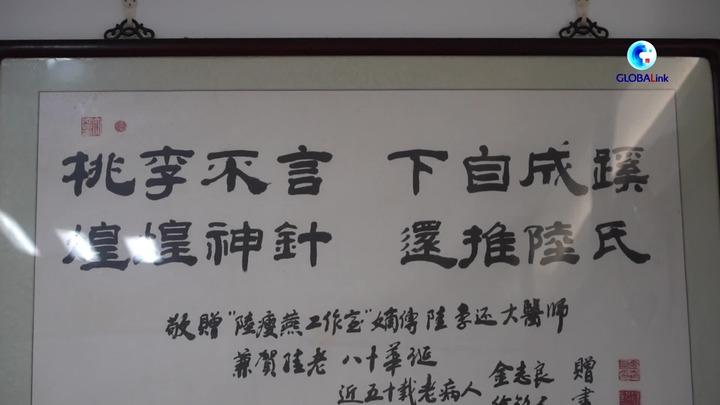 GLOBALink
桃李不言 下自成蹊
煌煌神針 還推陸氏
敬贈"陸瘦燕工作室"嫡傳陸李还大醫師
兼賀陸老八十華诞
近五十载老病人
金志良 贈